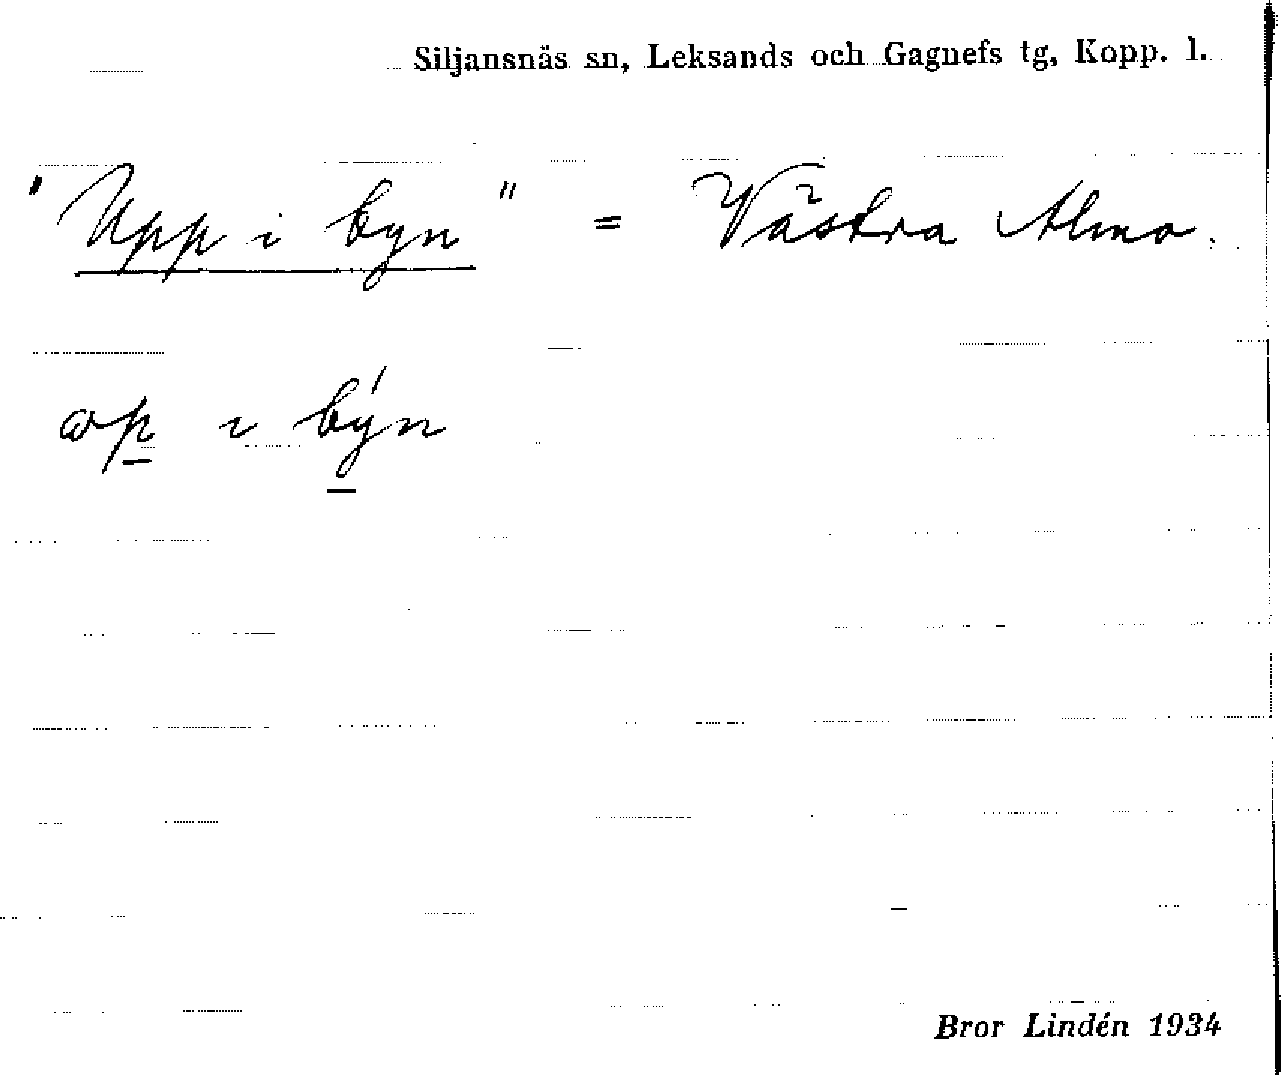 Siljansnäs sn, Leksands och Gagnefs tg, Kopp. l.
"Upp i byn" = Västra Almo.
ωp i býn
Bror Lindén 1934